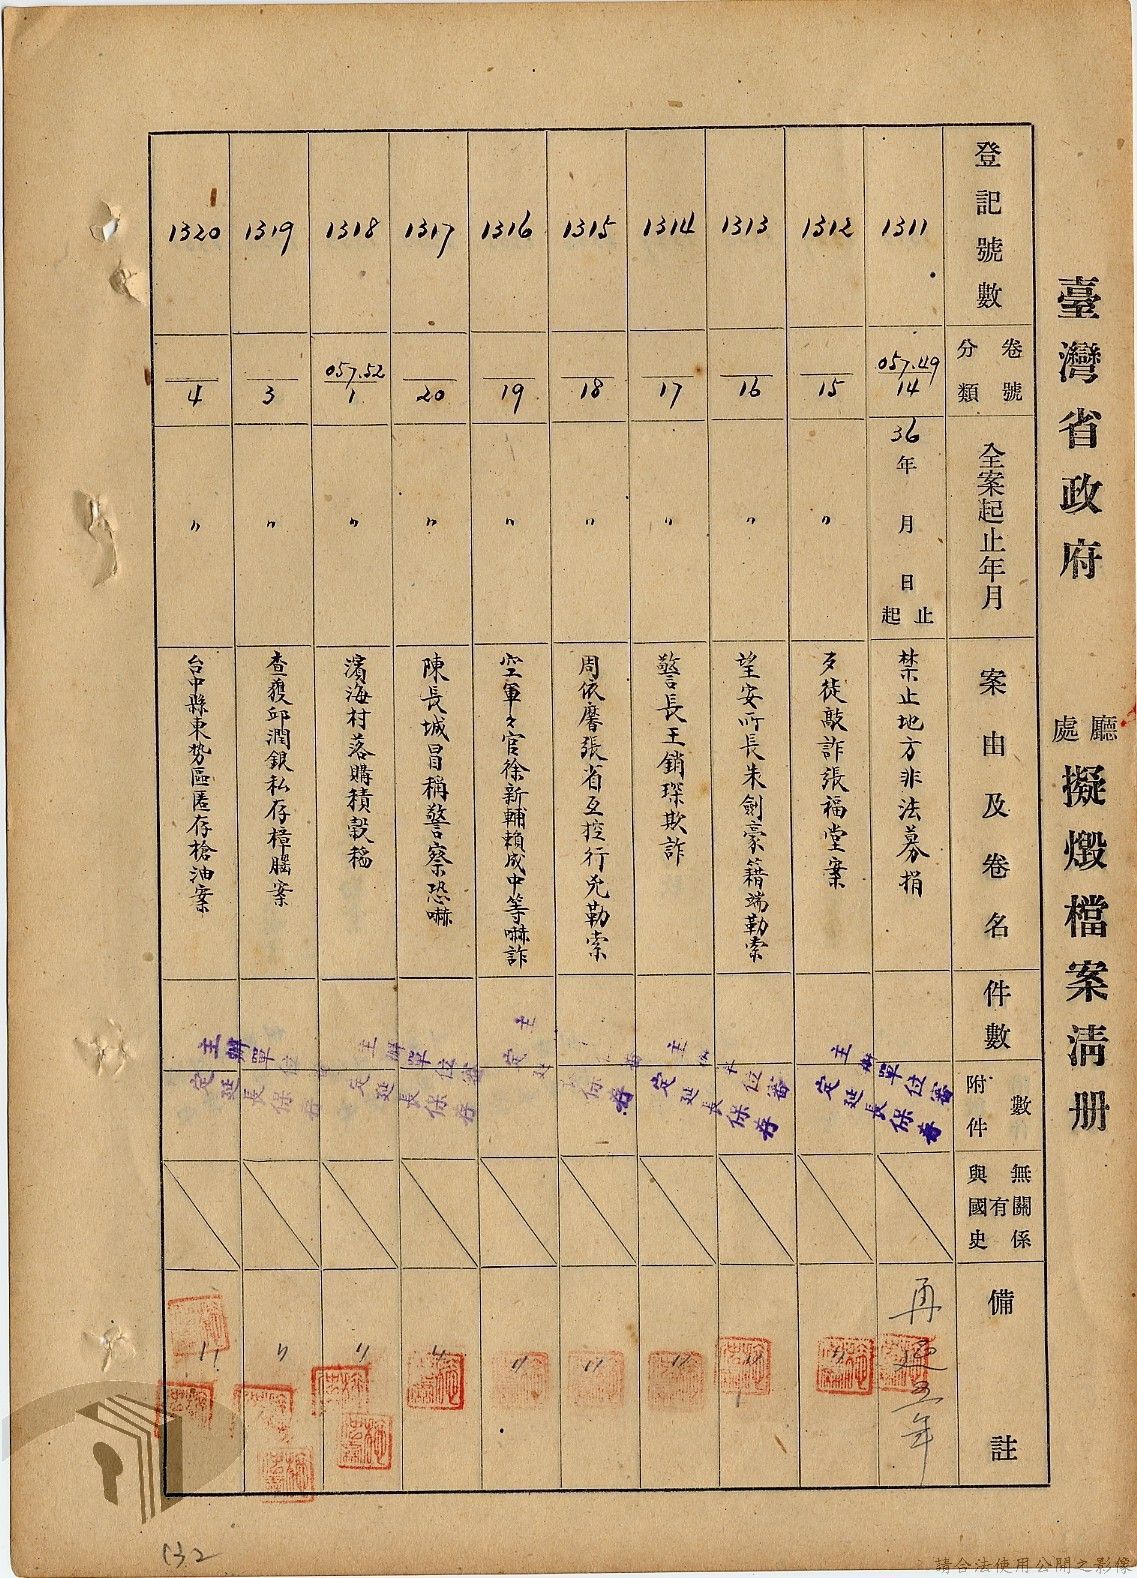 臺灣省政府 廳處 擬燬檔案清册
登記號數
卷號 分類
全案起止年月
案由及卷名
件數
附件數
與國史有無關係
備註
1311
057.49
14
36年 月 日 起止
禁止地方非法募捐
再延五年
1312
15
〃
歹徒敲詐張福堂案
〃
1313
16
〃
望安所長朱劍豪籍端勒索
〃
1314
17
〃
警長王銷琛欺詐
〃
1315
18
〃
周依磨張省互控行兇勒索
〃
1316
19
〃
空軍々官徐新輔賴成中等嚇詐
〃
1317
20
〃
陳長城冒稱警察恐嚇
〃
1318
057.52
1
〃
濱海村落購積穀稻
〃
1319
3
〃
查獲邱潤銀私存樟腦案
〃
1320
4
〃
台中縣東势區匿存槍油案
〃
主辦單位審定延長保存
主辦單位審定延長保存
主辦單位審定延長保存
132
請合法使用公開之影像